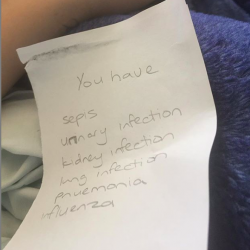 You have
sepis
urinary infection
kidney infection
lung infection
pnuemonia
influenza